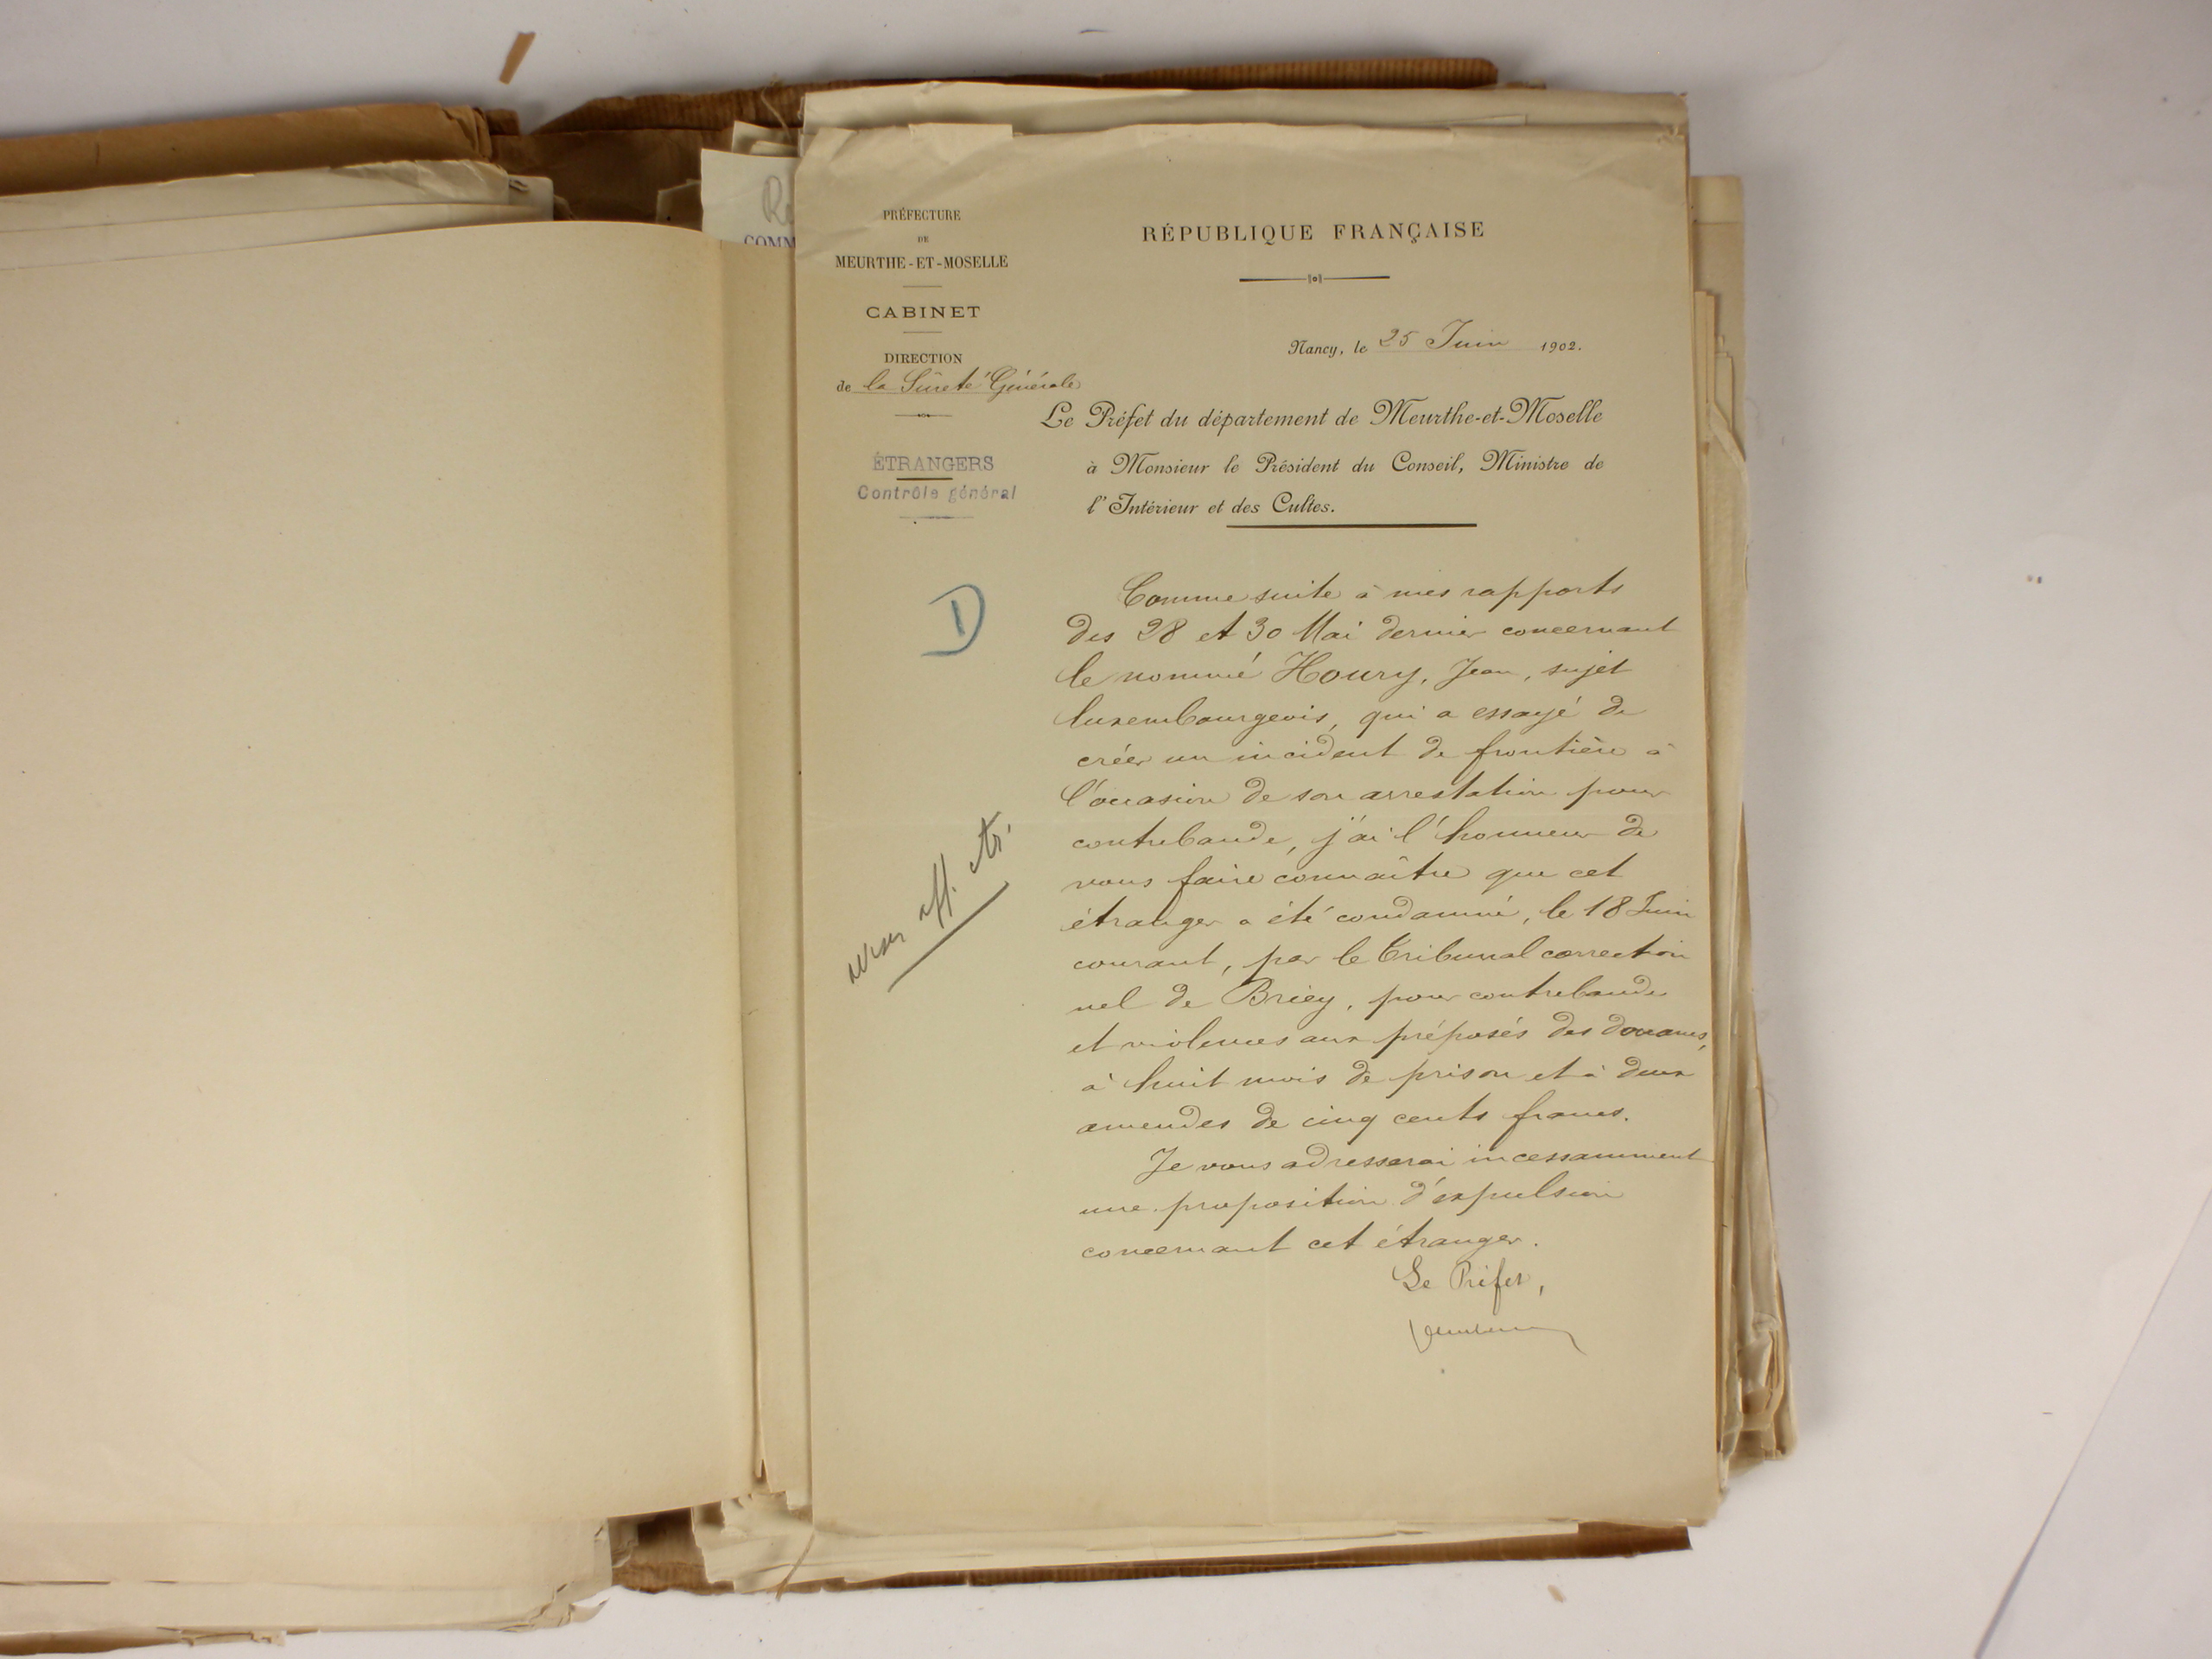 PRÉFECTURE
DE
MEURTHE-ET-MOSELLE
CABINET
DIRECTION
de la Sûreté Générale
ÉTRANGERS
Contrôle général
D
aff. étr.
COMM
RÉPUBLIQUE FRANÇAISE
Nancy, le 25 Juin 1902.
Le Préfet du département de Meurthe-et-Moselle
à Monsieur le Président du Conseil, Ministre de
l'Intérieur et des Cultes.
Comme suite à mes rapports
des 28 et 30 Mai dernier concernant
le nommé Houry, Jean, sujet
luxembourgeois, qui a essayé de
créer un incident de frontière à
l'occasion de son arrestation pour
contrebande, j'ai l'honneur de
vous faire connaître que cet
étranger a été condamné, le 18 Juin
courant, par le Tribunal correction
nel de Briey, pour contrebande
et violences aux préposés des douanes,
à huit mois de prison et à deux
amendes de cinq cents francs.
Je vous adresserai incessamment
une proposition d'expulsion
concernant cet étranger.
Le Préfet,